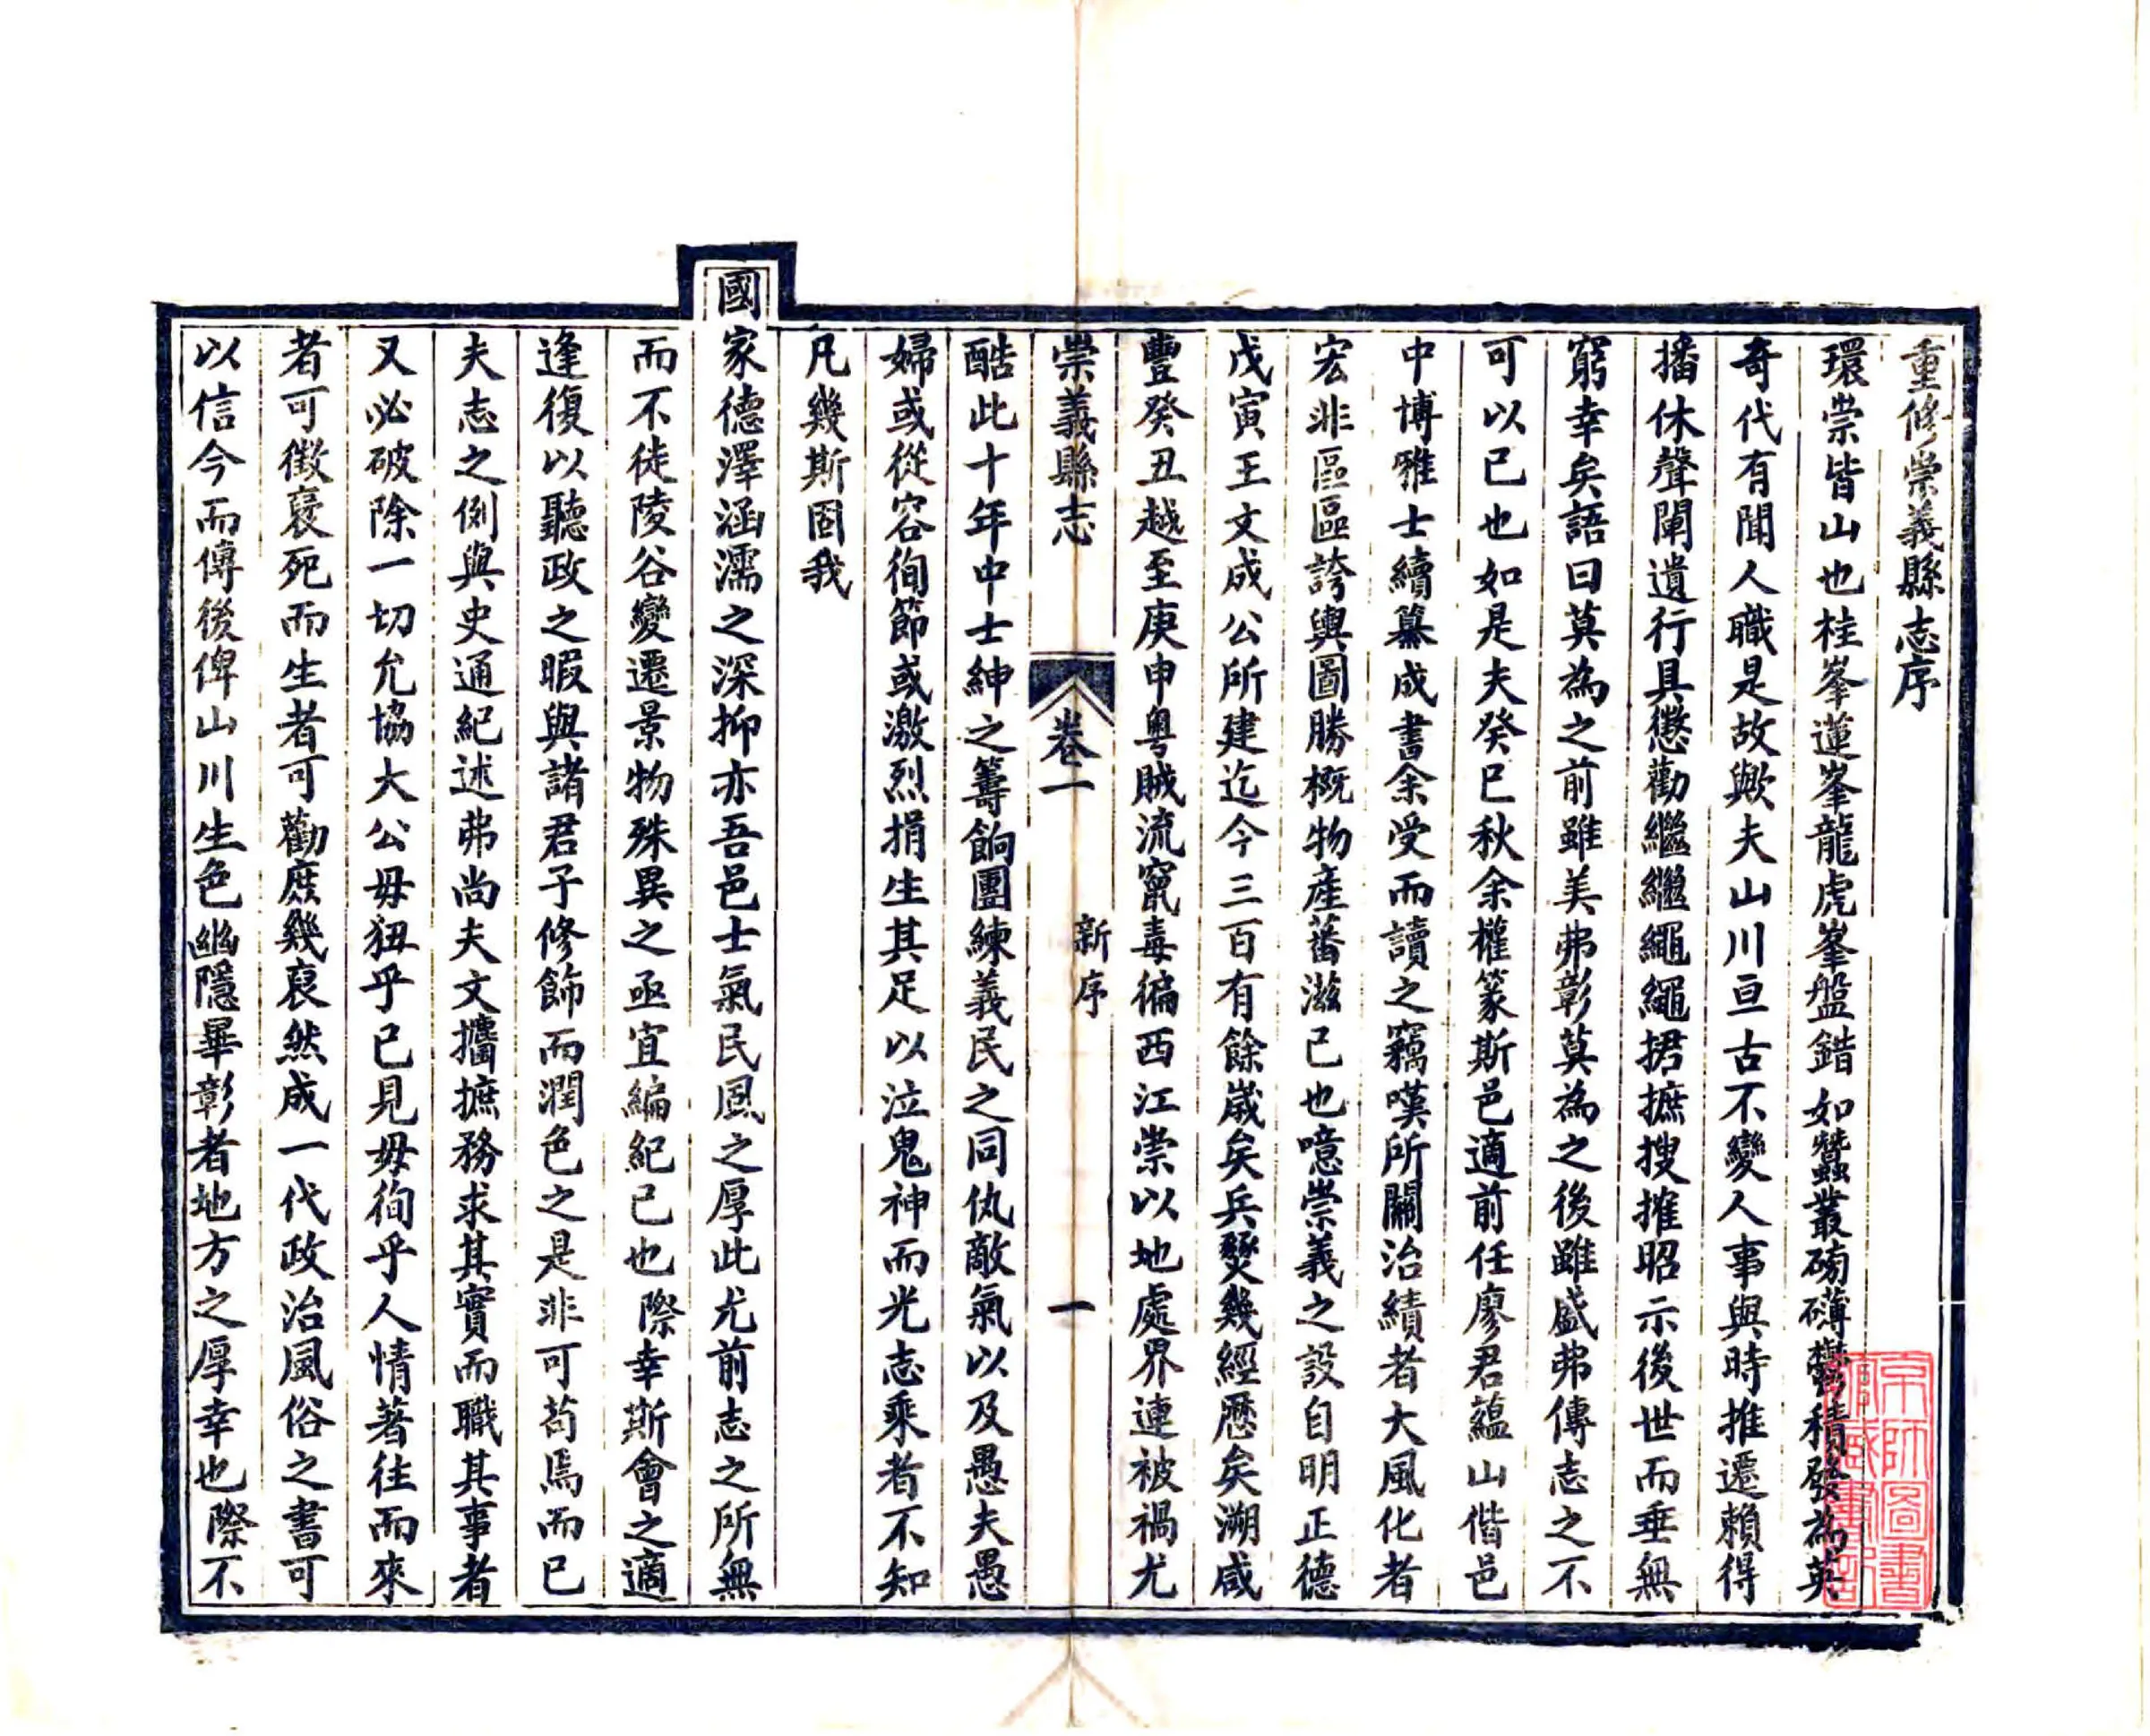 重修崇義縣志序
環崇皆山也桂峯蓮峯龍虎峯盤錯如蠶叢磅礡鬱積發為英
奇代有聞人職是故歟夫山川亘古不變人事與時推遷賴得
播休聲闡遺行具懲勸繼繼繩繩捃摭搜摧昭示後世而垂無
窮幸矣語曰莫為之前雖美弗彰莫為之後雖盛弗傳志之不
可以已也如是夫癸巳秋余權篆斯邑適前任廖君蘊山偕邑
中博雅士續纂成書余受而讀之竊嘆所關治績者大風化者
宏非區區誇輿圖勝概物產蕃滋已也噫崇義之設自明正德
戊寅王文成公所建迄今三百有餘歲矣兵燹幾經歷矣溯咸
豐癸丑越至庚申粵賊流竄毒徧西江崇以地處界連被禍尤
崇義縣志 卷一 新序 一
酷此十年中士紳之籌餉團練義民之同仇敵氣以及愚夫愚
婦或從容徇節或激烈捐生其足以泣鬼神而光志乘者不知
凡幾斯固我
國家德澤涵濡之深抑亦吾邑士氣民風之厚此尤前志之所無
而不徒陵谷變遷景物殊異之亟宜編紀已也際幸斯會之適
逢復以聽政之暇與諸君子修飾而潤色之是非可苟焉而已
夫志之例與史通紀述弗尚夫文攟摭務求其實而職其事者
又必破除一切允協大公毋狃乎已見毋徇乎人情著往而來
者可徵褒死而生者可勸庶幾裒然成一代政治風俗之書可
以信今而傳後俾山川生色幽隱畢彰者地方之厚幸也際不
京師圖書